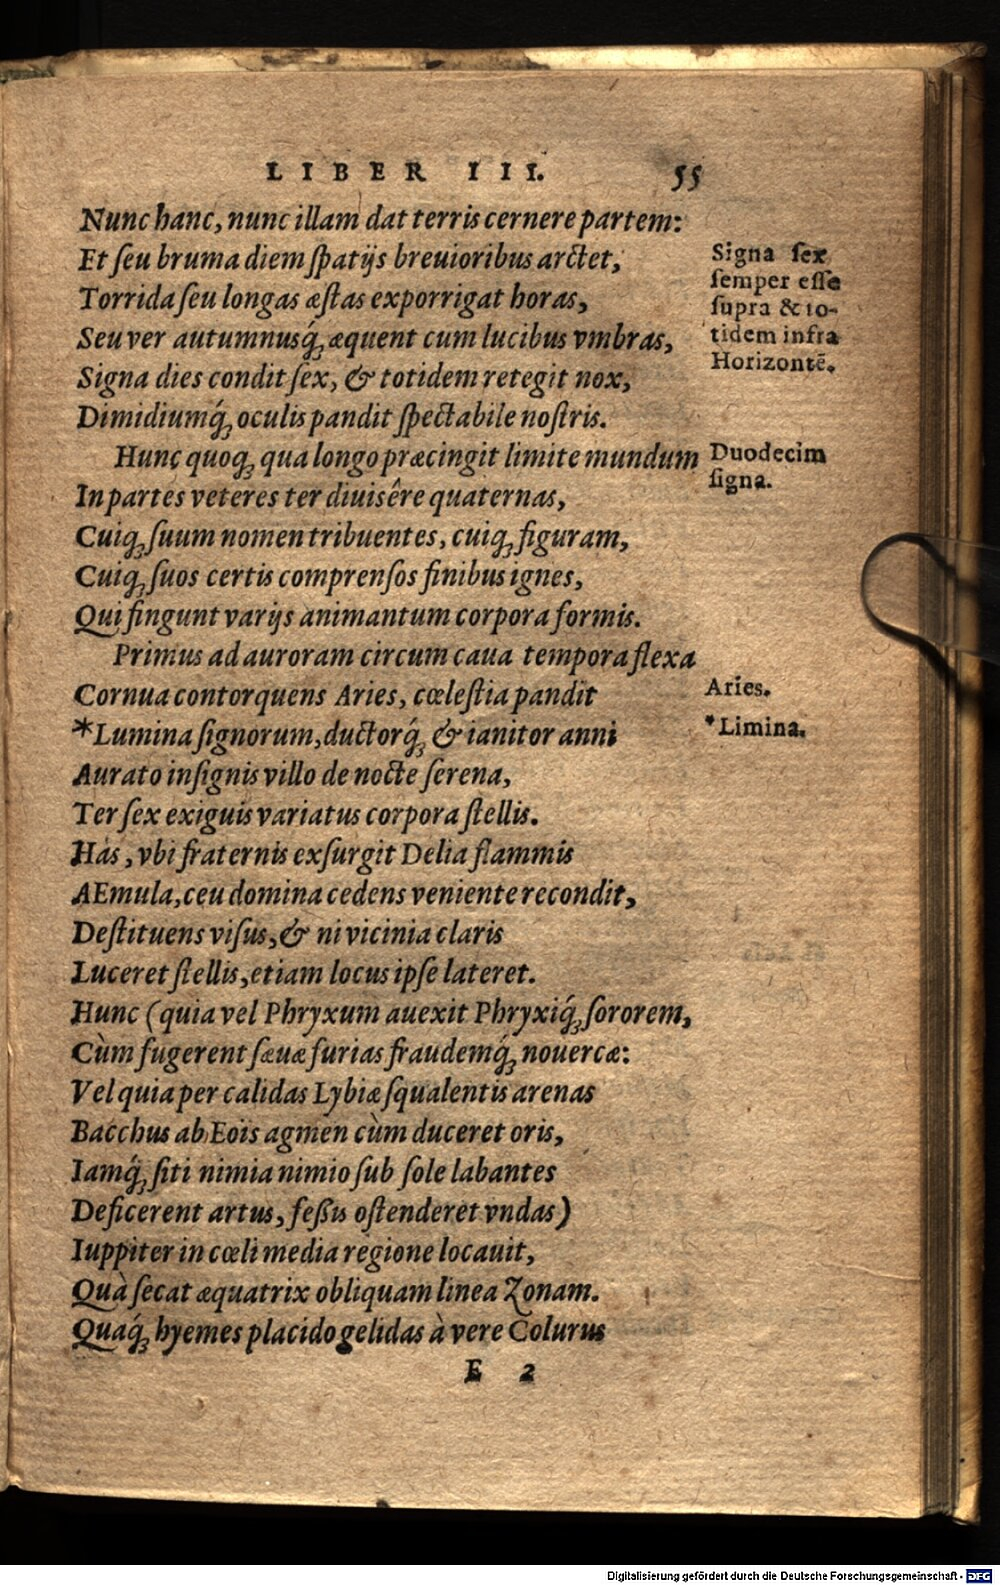 LIBER III. 55
Nunc hanc, nunc illam dat terris cernere partem:
Et ſeu bruma diem ſpatijs breuioribus arctet,
Torrida ſeu longas æſtas exporrigat horas,
Seu ver autumnusq́; æquent cum lucibus vmbras,
Signa dies condit ſex, & totidem retegit nox,
Dimidiumq́; oculis pandit ſpectabile noſtris.
Signa ſex
ſemper eſſe
ſupra & to-
tidem infra
Horizontē.
Hunc quoq; qua longo præcingit limite mundum
In partes veteres ter diuisêre quaternas,
Cuiq; ſuum nomen tribuentes, cuiq; figuram,
Cuiq; ſuos certis comprenſos finibus ignes,
Qui fingunt varijs animantum corpora formis.
Duodecim
ſigna.
Primus ad auroram circum caua tempora flexa
Cornua contorquens Aries, cœleſtia pandit
*Lumina ſignorum, ductorq́; & ianitor anni
Aurato inſignis villo de nocte ſerena,
Ter ſex exiguis variatus corpora ſtellis.
Aries.
*Limina.
Has, vbi fraternis exſurgit Delia flammis
AEmula, ceu domina cedens veniente recondit,
Deſtituens viſus, & ni vicinia claris
Luceret ſtellis, etiam locus ipſe lateret.
Hunc (quia vel Phryxum auexit Phryxiq́; ſororem,
Cùm fugerent ſæuæ furias fraudemq́; nouercæ:
Vel quia per calidas Lybiæ ſqualentis arenas
Bacchus ab Eois agmen cùm duceret oris,
Iamq́; ſiti nimia nimio ſub ſole labantes
Deficerent artus, feßis oſtenderet vndas)
Iuppiter in cœli media regione locauit,
Quà ſecat æquatrix obliquam linea Zonam.
Quaq́; hyemes placido gelidas à vere Colurus
E 2
Digitalisierung gefördert durch die Deutsche Forschungsgemeinschaft - DFG